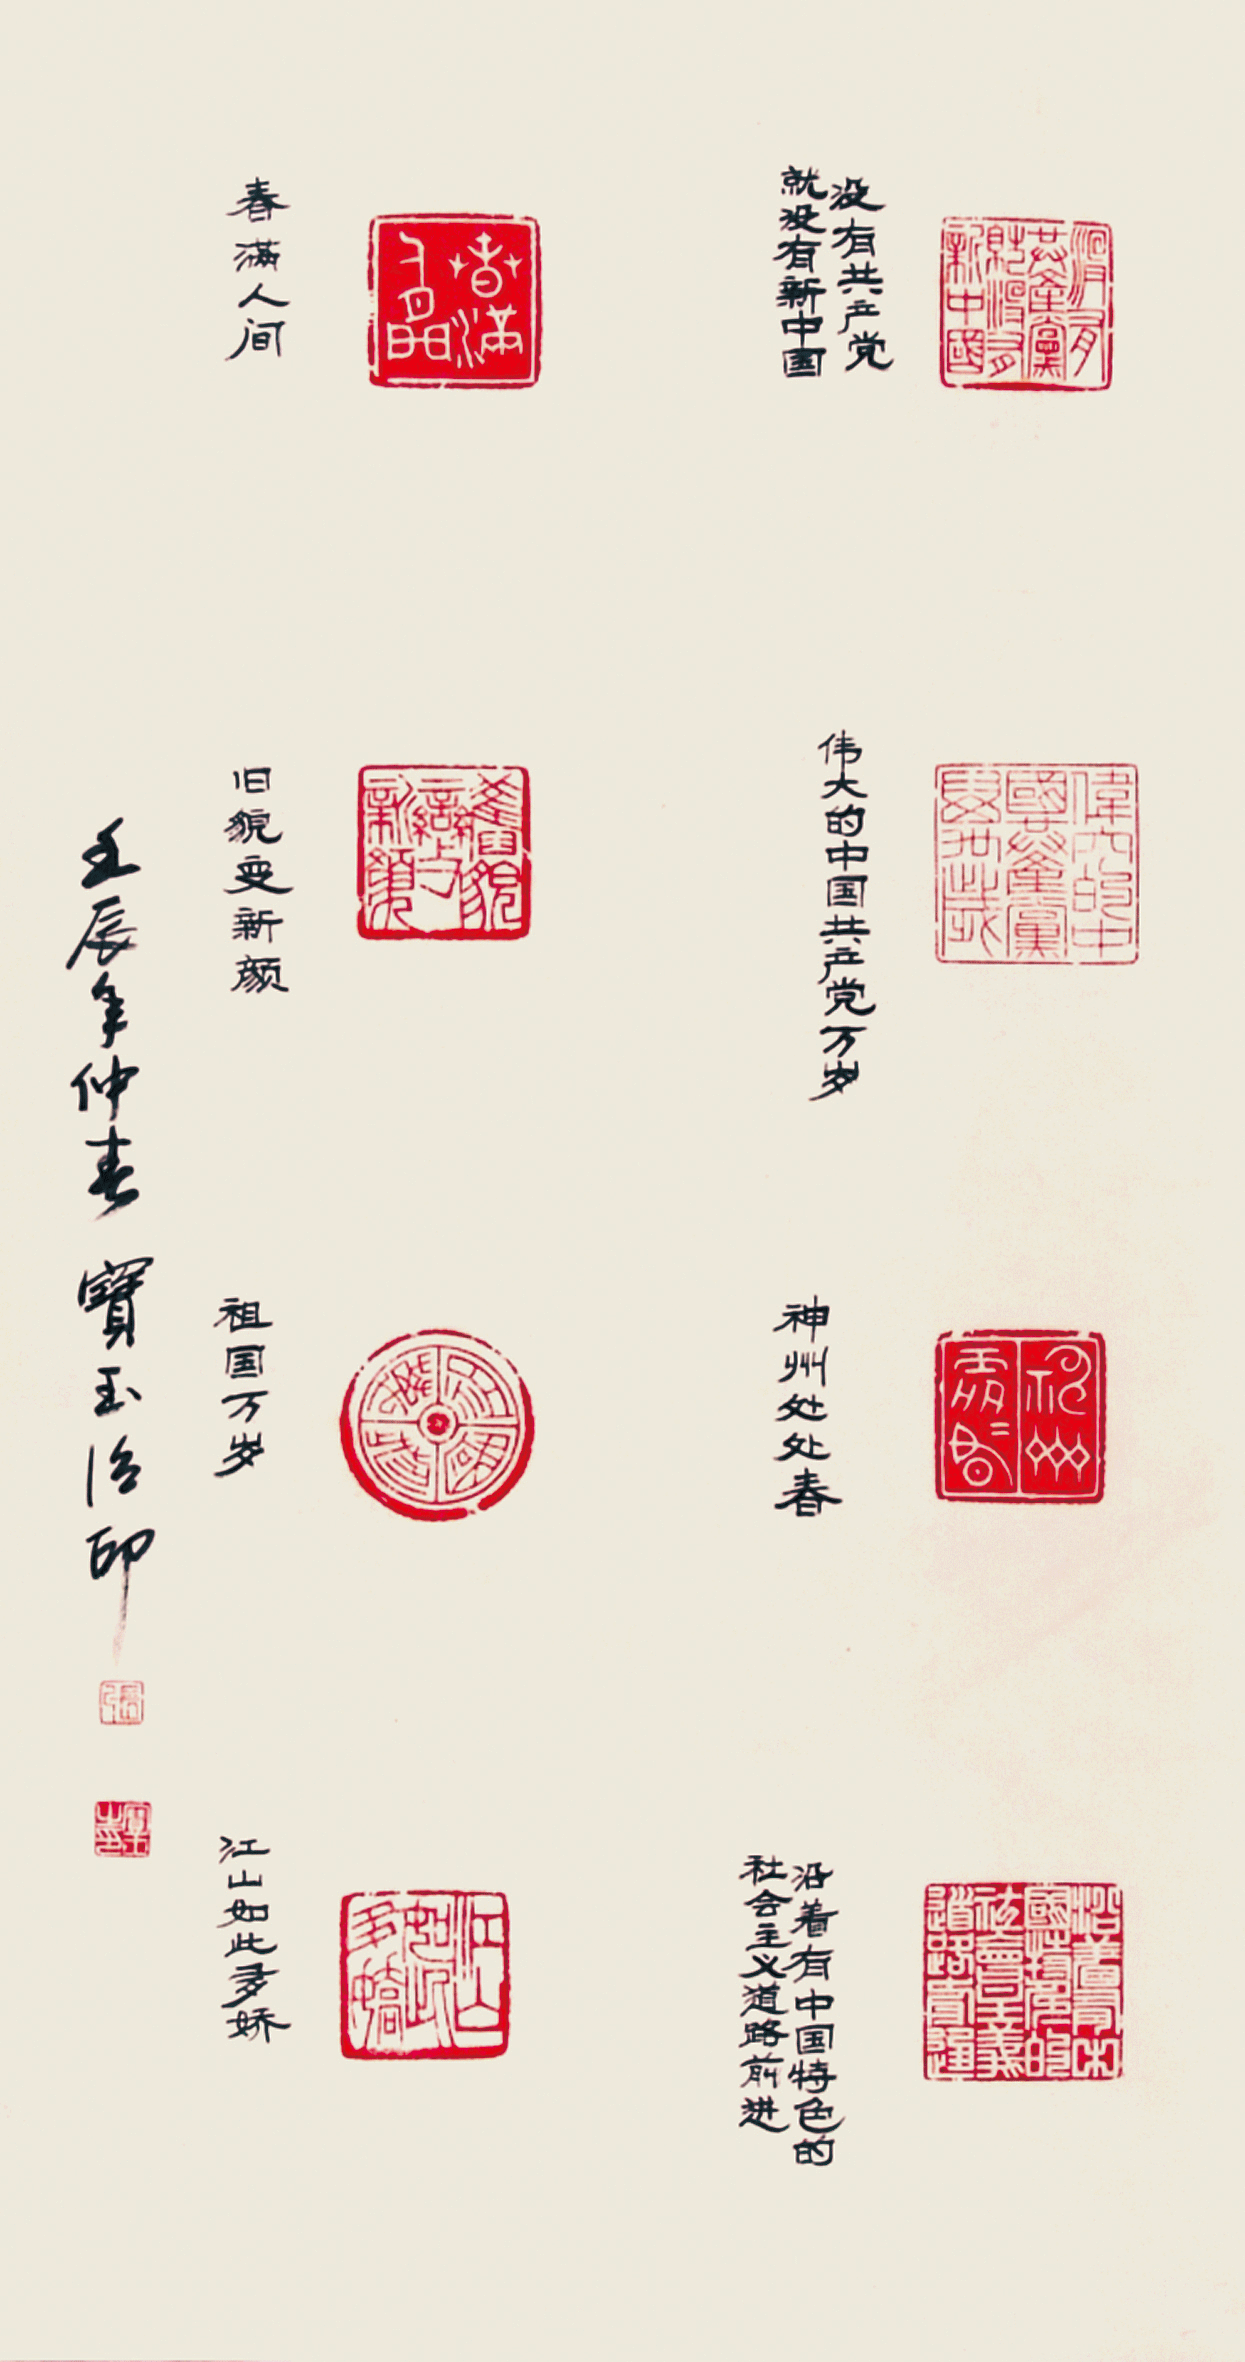 没有共产党
就没有新中国
伟大的中国共产党万岁
神州处处春
沿着有中国特色的
社会主义道路前进
春满人间
旧貌变新颜
祖国万岁
江山如此多娇
壬辰年仲春 寶玉治印